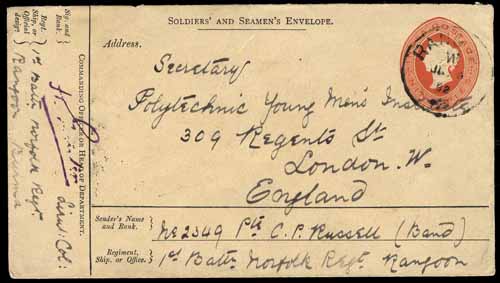 SOLDIERS' AND SEAMEN'S ENVELOPE.
Address.
Secretary
Polytechnic Young Men's Institute
309 Regents St
London. W.
England
Sender's Name and Rank.
No 2349 Pte C. P. Russell (Band)
Regiment, Ship, or Office.
1st Battn Norfolk Regt. Rangoon
COMMANDING OFFICER OR HEAD OF DEPARTMENT.
Sig. and Rank.
Lieut: Col:
Regt. Ship, or Official desig.
1st Battn Norfolk Regt.
Rangoon Burma